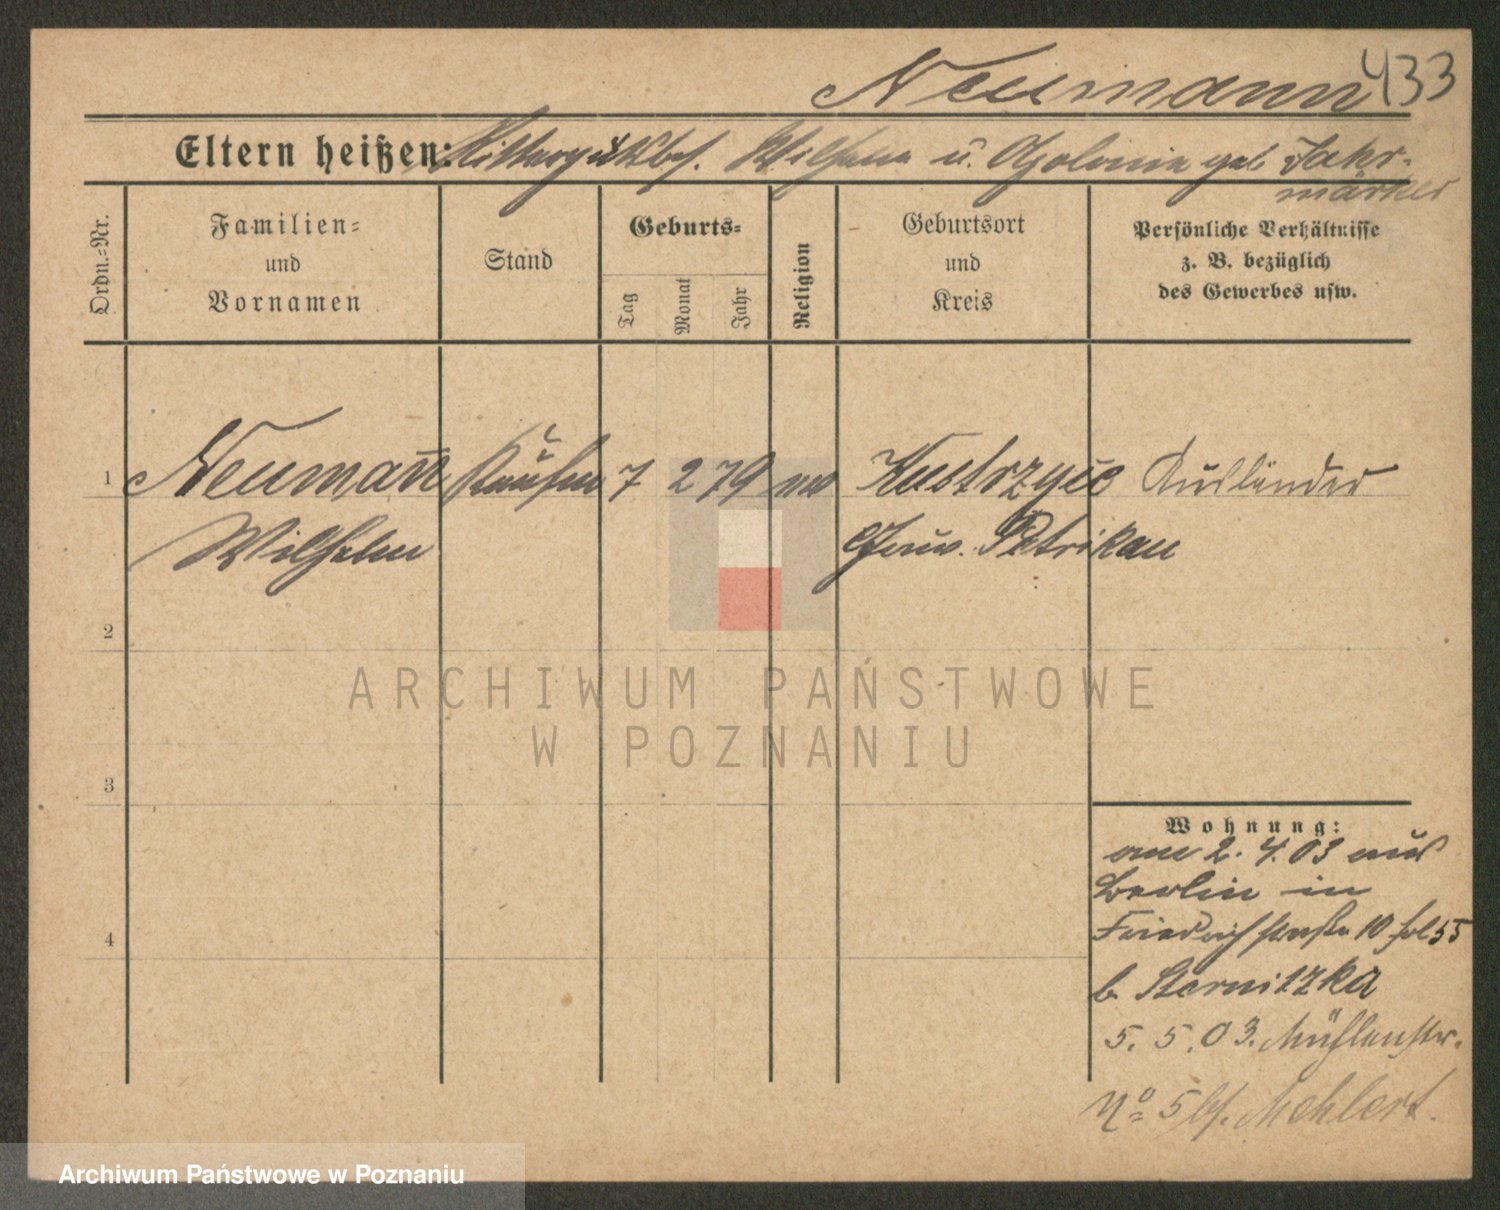 Neumann 433
Eltern heißen: Rittergutsbes. Wilhelm u. Apolonie geb Jahr-
märker
Ordn.-Nr.
Familien-
und
Vornamen
Stand
Geburts-
Tag
Monat
Jahr
Religion
Geburtsort
und
Kreis
Persönliche Verhältnisse
z. B. bezüglich
des Gewerbes usw.
1 Neumann Kaufm 7 2 79 Ausländer
Wilhelm Gouv. Petrikau
2
ARCHIWUM PAŃSTWOWE
W POZNANIU
3
Wohnung:
am 2. 4. 03 aus
Berlin in
4
Friedrichstraße 10 hol 55
b. Sternitzka
5. 5. 03. Mühlenstr.
No 5 bf. Mehlert.
Archiwum Państwowe w Poznaniu